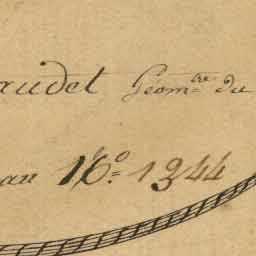 audet Géom.re du
an 16.o 1344